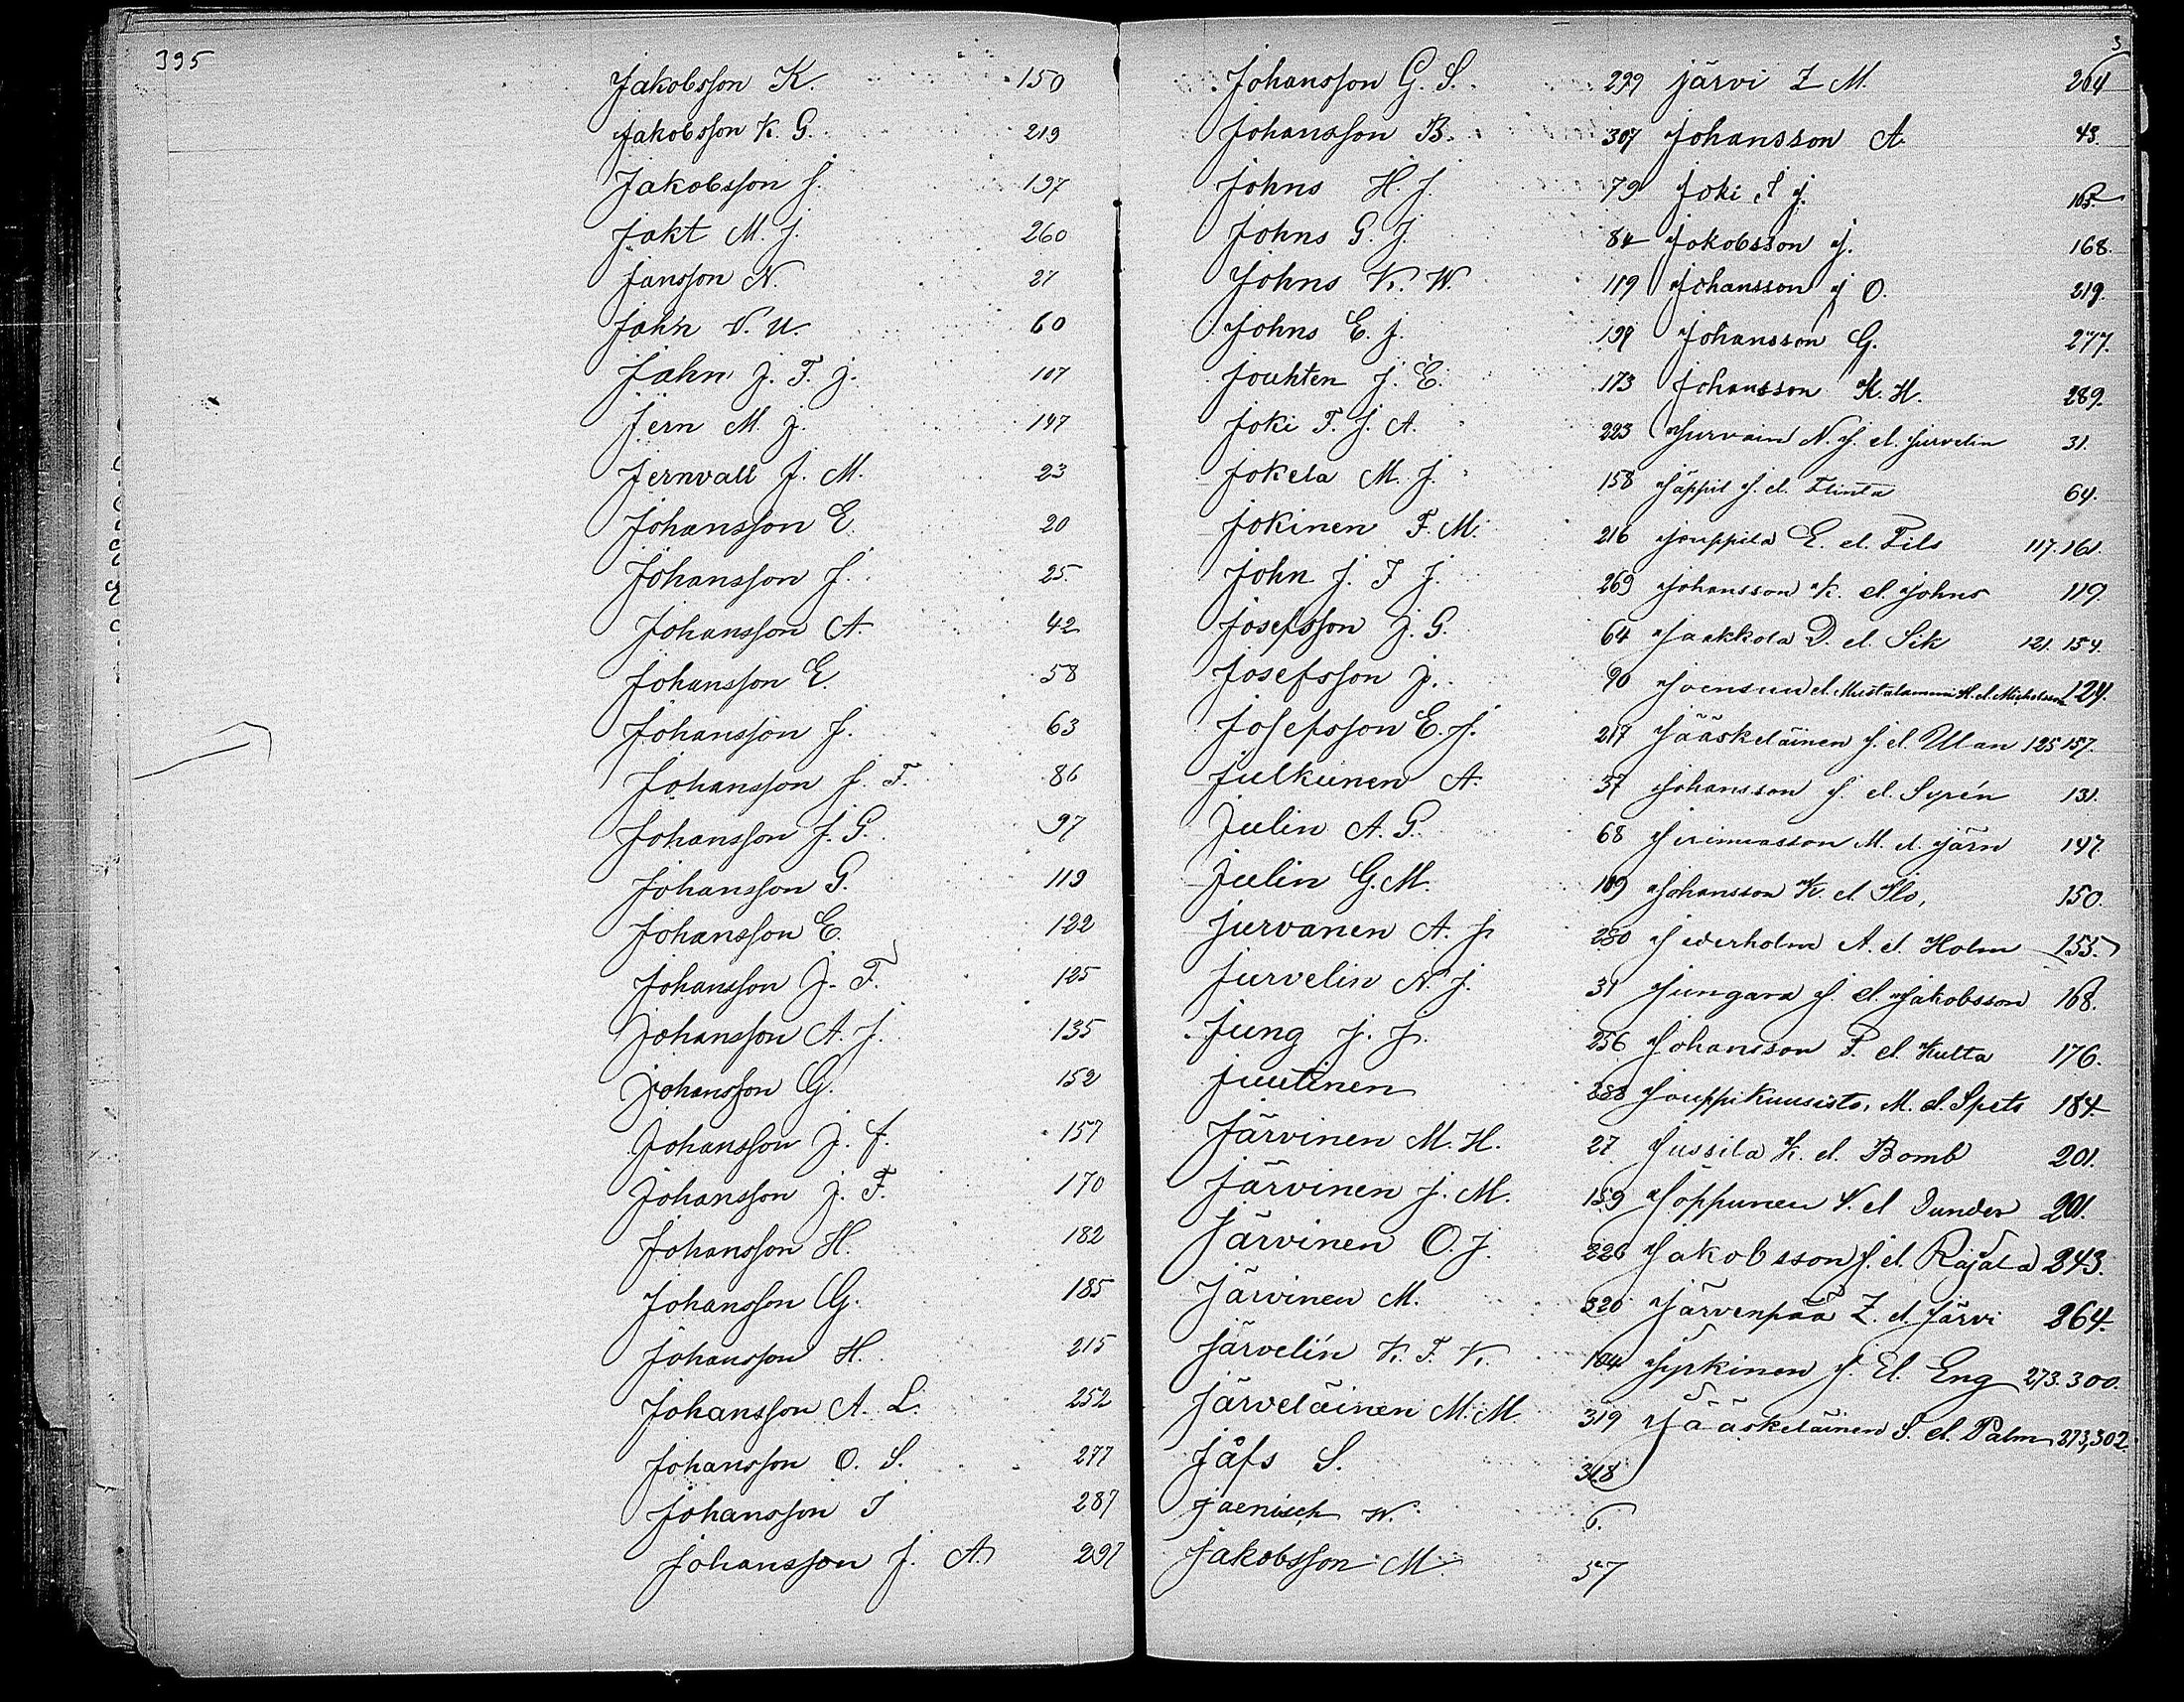 395
Jakobsson K. 150
Jakobsson K. G. 219
Jakobsson J. 197
Jakt M. J. 260
Jansson N. 27
Jahn V. U. 60
Jahn J. F. J. 107
Jern M. J. 147
Jernvall J. M. 23
Johansson E. 20
Johansson J. 25.
Johansson A. 42
Johansson E. 58
Johansson J. 63
Johansson J. F. 86
Johansson J. G. 97
Johansson G. 119
Johansson E. 122
Johansson J. F. 125
Johansson A. J. 135
Johansson G. 152
Johansson J. J. 157
Johansson J. F. 170
Johansson H. 182
Johansson G. 185
Johansson H. 215
Johansson A. L. 252
Johansson O. S. 277
Johansson I 287
Johansson J. A. 297
Johansson G. S. 299
Johansson B. 307
Johns H. J. 79
Johns G. J. 84
Johns K. W. 119
Johns E. J. 139
Jouhten J. E. 173
Joki F. J. A. 223
Jokela M. J. 158
Jokinen F. M. 216
John J. F J. 269
Josefsson J. G. 64
Josefsson J. 90
Josefsson E. J. 217
Julkunen A. 37
Julin A. G. 68
Julin G. M. 109
Jurvanen A. J. 280
Jurvelin N. J. 31
Jung J. J. 256
Juutinen 288
Järvinen M. H. 27
Järvinen J. M. 159
Järvinen O. J. 226
Järvinen M. 320
Järvelin K. F. V. 104
Järveläinen M. M. 319
Jåfs S. 318
Jaenisch W. 6.
Jakobsson M. 57
Järvi Z M. 264
Johansson A. 43.
Joki I J. 105.
Jokobsson J. 168.
Johansson J O. 219.
Johansson G. 277.
Johansson K. H. 289.
Jurvain N. J. el. Jurvelin 31.
Jäppil J. el. Flinta 64.
Jouppila E. el. Fils 117. 161.
Johansson K. el. Johns 119.
Jaakkola D. el. Sik 121. 154.
Joensuu el. Mustalammi H. el. Michelsson 124.
Jääskeläinen J. el. Ulan 125 157.
Johansson J. el. Syrén 131.
Jeremiasson M. el. Järn 147.
Johansson K. el. Ilo, 150.
Jederholm A. el. Holm 153.
Jungara J. el. Jakobsson 168.
Johansson P. el. Kulta 176.
Jouppikuusisto, M. el. Spets 184.
Jussila K. el. Bomb 201.
Joppunen V. el Dunder 201.
Jakobsson J. el. Rajala 243.
Järvenpää Z. el. Järvi 264.
Jyrkinen J. El. Eng 273. 300.
Jääskeläinen S. el. Palm 273, 302.